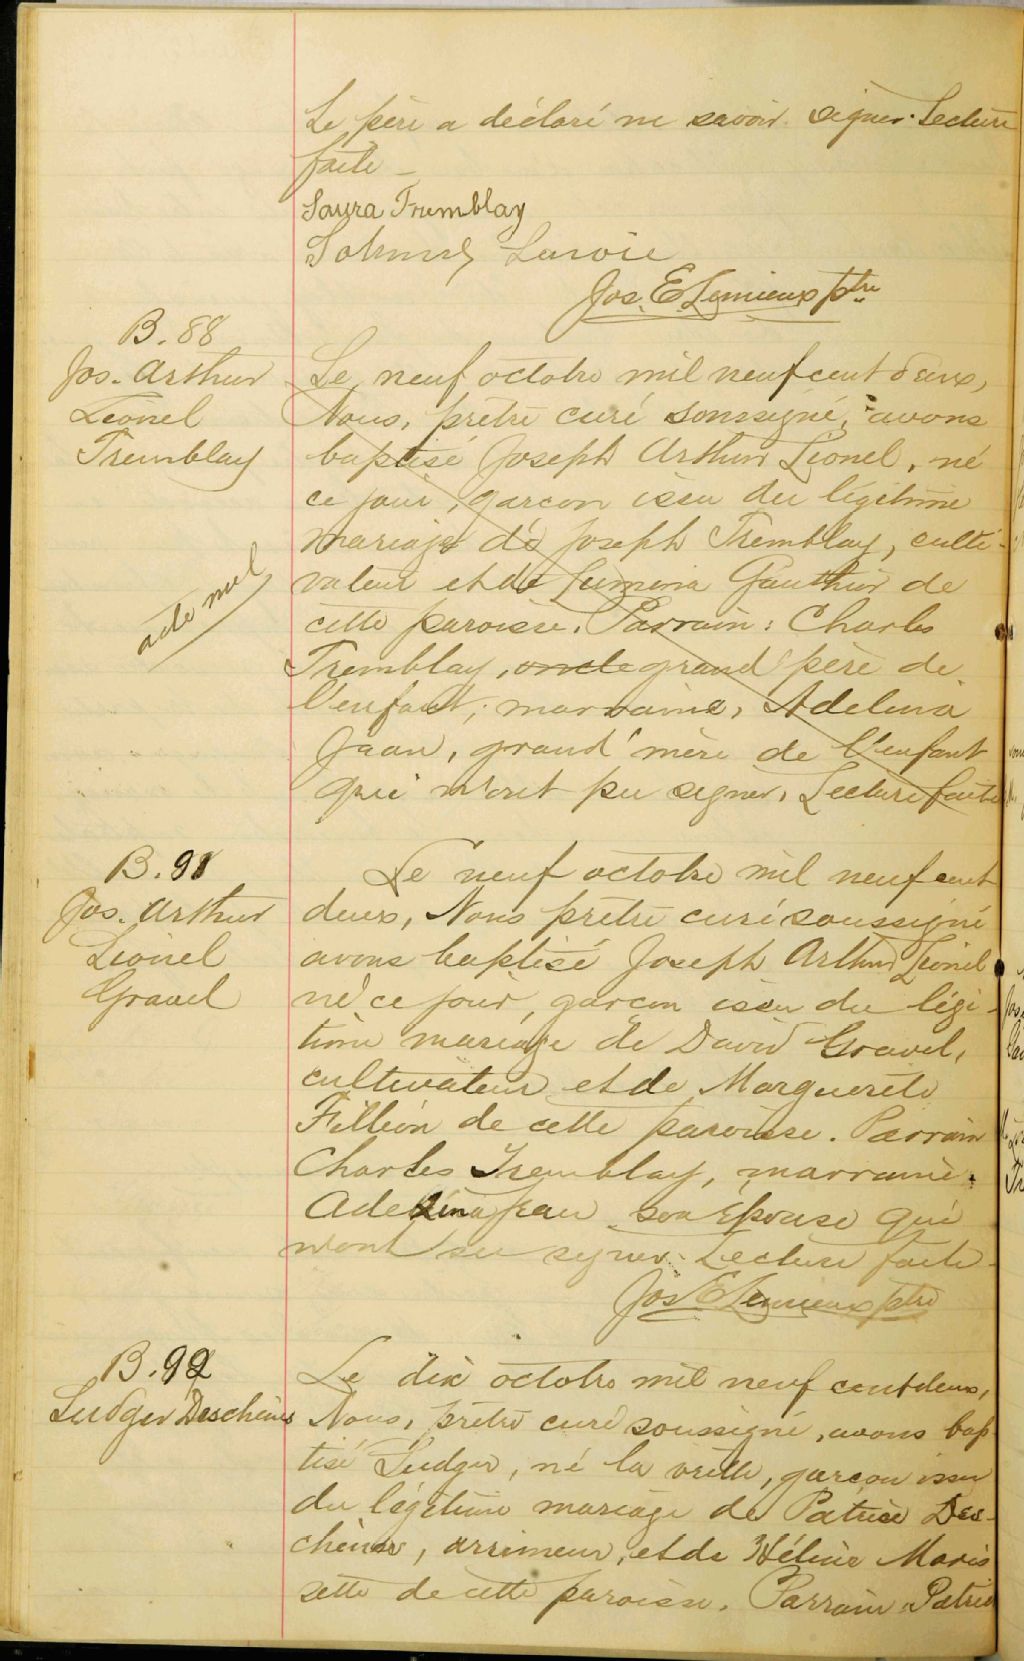 Le père a déclaré ne savoir signer. Lecture
faite –
Laura Tremblay
Johnny Lavoie
Jos. E. Lemieux ptre
B. 88
Jos. Arthur
Lionel
Tremblay
acte nul
Le neuf octobre mil neuf cent deux,
Nous, prêtre curé soussigné, avons
baptisé Joseph Arthur Lionel, né
ce jour, garçon issu du légitime
mariage de Joseph Tremblay, culti-
vateur et de Gauthier de
cette paroisse. Parrain : Charles
Tremblay, oncle grand père de
l'enfant; marraine, Adelina
Jean, grand'mère de l'enfant
qui n'ont pu signer. Lecture faite
B. 91
Jos. Arthur
Lionel
Gravel
Le neuf octobre mil neuf cent
deux, Nous prêtre curé soussigné
avons baptisé Joseph Arthur Lionel
né ce jour, garçon issu du légi-
time mariage de David Gravel,
cultivateur et de Marguerite
Fillion de cette paroisse. Parrain
Charles Tremblay, marraine
Adelina Jean son épouse qui
n'ont su signer. Lecture faite
Jos E Lemieux ptre
B. 92
Ludger Deschênes
Le dix octobre mil neuf cent deux,
Nous, prêtre curé soussigné, avons bap
tisé Ludger, né la veille, garçon issu
du légitime mariage de Patrice Des-
chênes, arrimeur, et de Hélène Moris
sette de cette paroisse. Parrain Patrice